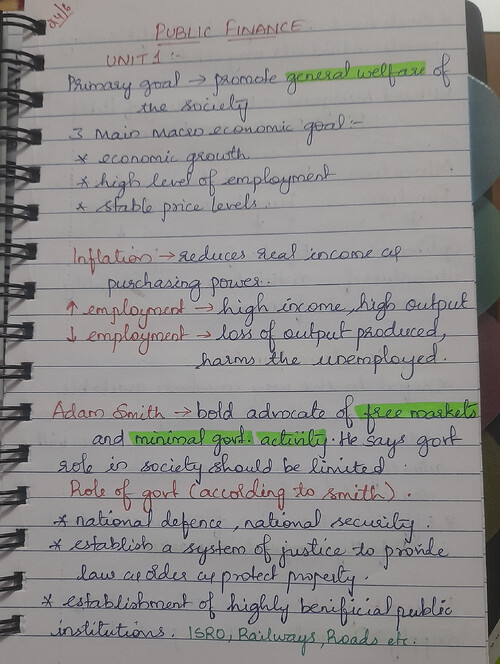 24/6
PUBLIC FINANCE
UNIT 1 :-
Primary goal → promote general welfare of
the society
3 Main Macro economic goal :-
* economic growth
* high level of employment
* stable price levels.
Inflation → reduces real income &
purchasing power.
↑ employment → high income, high output
↓ employment → loss of output produced,
harms the unemployed.
Adam Smith → bold advocate of free markets
and minimal govt. activity. He says govt
role in society should be limited.
Role of govt (according to smith).
* national defence, national security.
* establish a system of justice to provide
law & order & protect property.
* establishment of highly benificial public
institutions. ISRO, Railways, Roads etc.